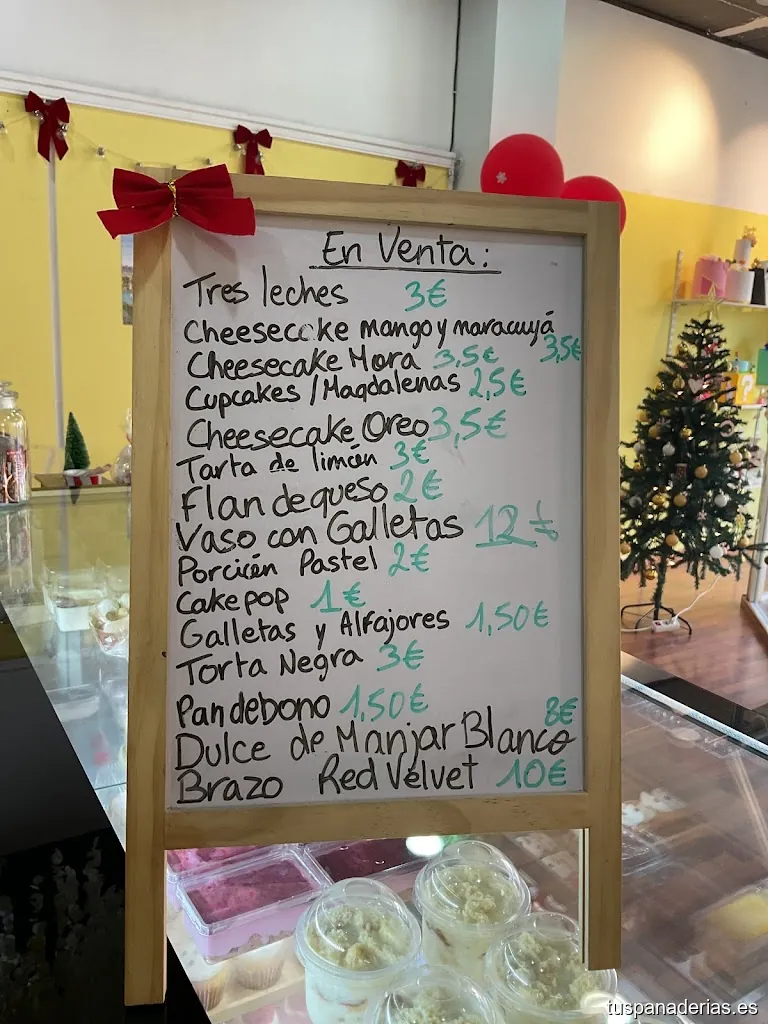 En Venta:
Tres leches 3€
Cheesecake mango y maracuyá 3,5€
Cheesecake Mora 3,5€
Cupcakes / Magdalenas 2,5€
Cheesecake Oreo 3,5€
Tarta de limón 3€
Flan de queso 2€
Vaso con Galletas 12€
Porción Pastel 2€
Cakepop 1€
Galletas y Alfajores 1,50€
Torta Negra 3€
Pandebono 1,50€
Dulce de Manjar Blanco 8€
Brazo Red Velvet 10€
tuspanaderias.es